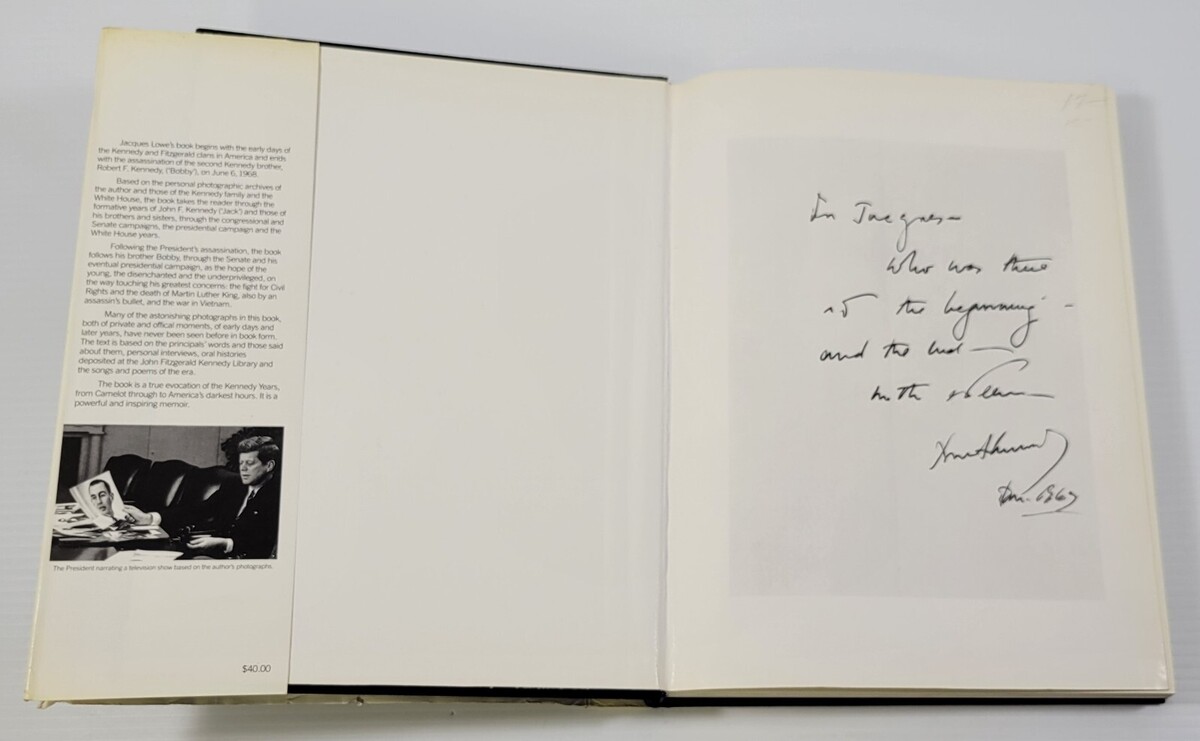 Jacques Lowe's book begins with the early days of
the Kennedy and Fitzgerald clans in America and ends
with the assassination of the second Kennedy brother,
Robert F. Kennedy, ('Bobby'), on June 6, 1968.
Based on the personal photographic archives of
the author and those of the Kennedy family and the
White House, the book takes the reader through the
formative years of John F. Kennedy ('Jack') and those of
his brothers and sisters, through the congressional and
Senate campaigns, the presidential campaign and the
White House years.
Following the President's assassination, the book
follows his brother Bobby, through the Senate and his
eventual presidential campaign, as the hope of the
young, the disenchanted and the underprivileged, on
the way touching his greatest concerns: the fight for Civil
Rights and the death of Martin Luther King, also by an
assassin's bullet, and the war in Vietnam.
Many of the astonishing photographs in this book,
both of private and offical moments, of early days and
later years, have never been seen before in book form.
The text is based on the principals' words and those said
about them, personal interviews, oral histories
deposited at the John Fitzgerald Kennedy Library and
the songs and poems of the era.
The book is a true evocation of the Kennedy Years,
from Camelot through to America's darkest hours. It is a
powerful and inspiring memoir.
The President narrating a television show based on the author's photographs.
$40.00
For Jacques—
who was there
at the beginning -
and the end —
with esteem